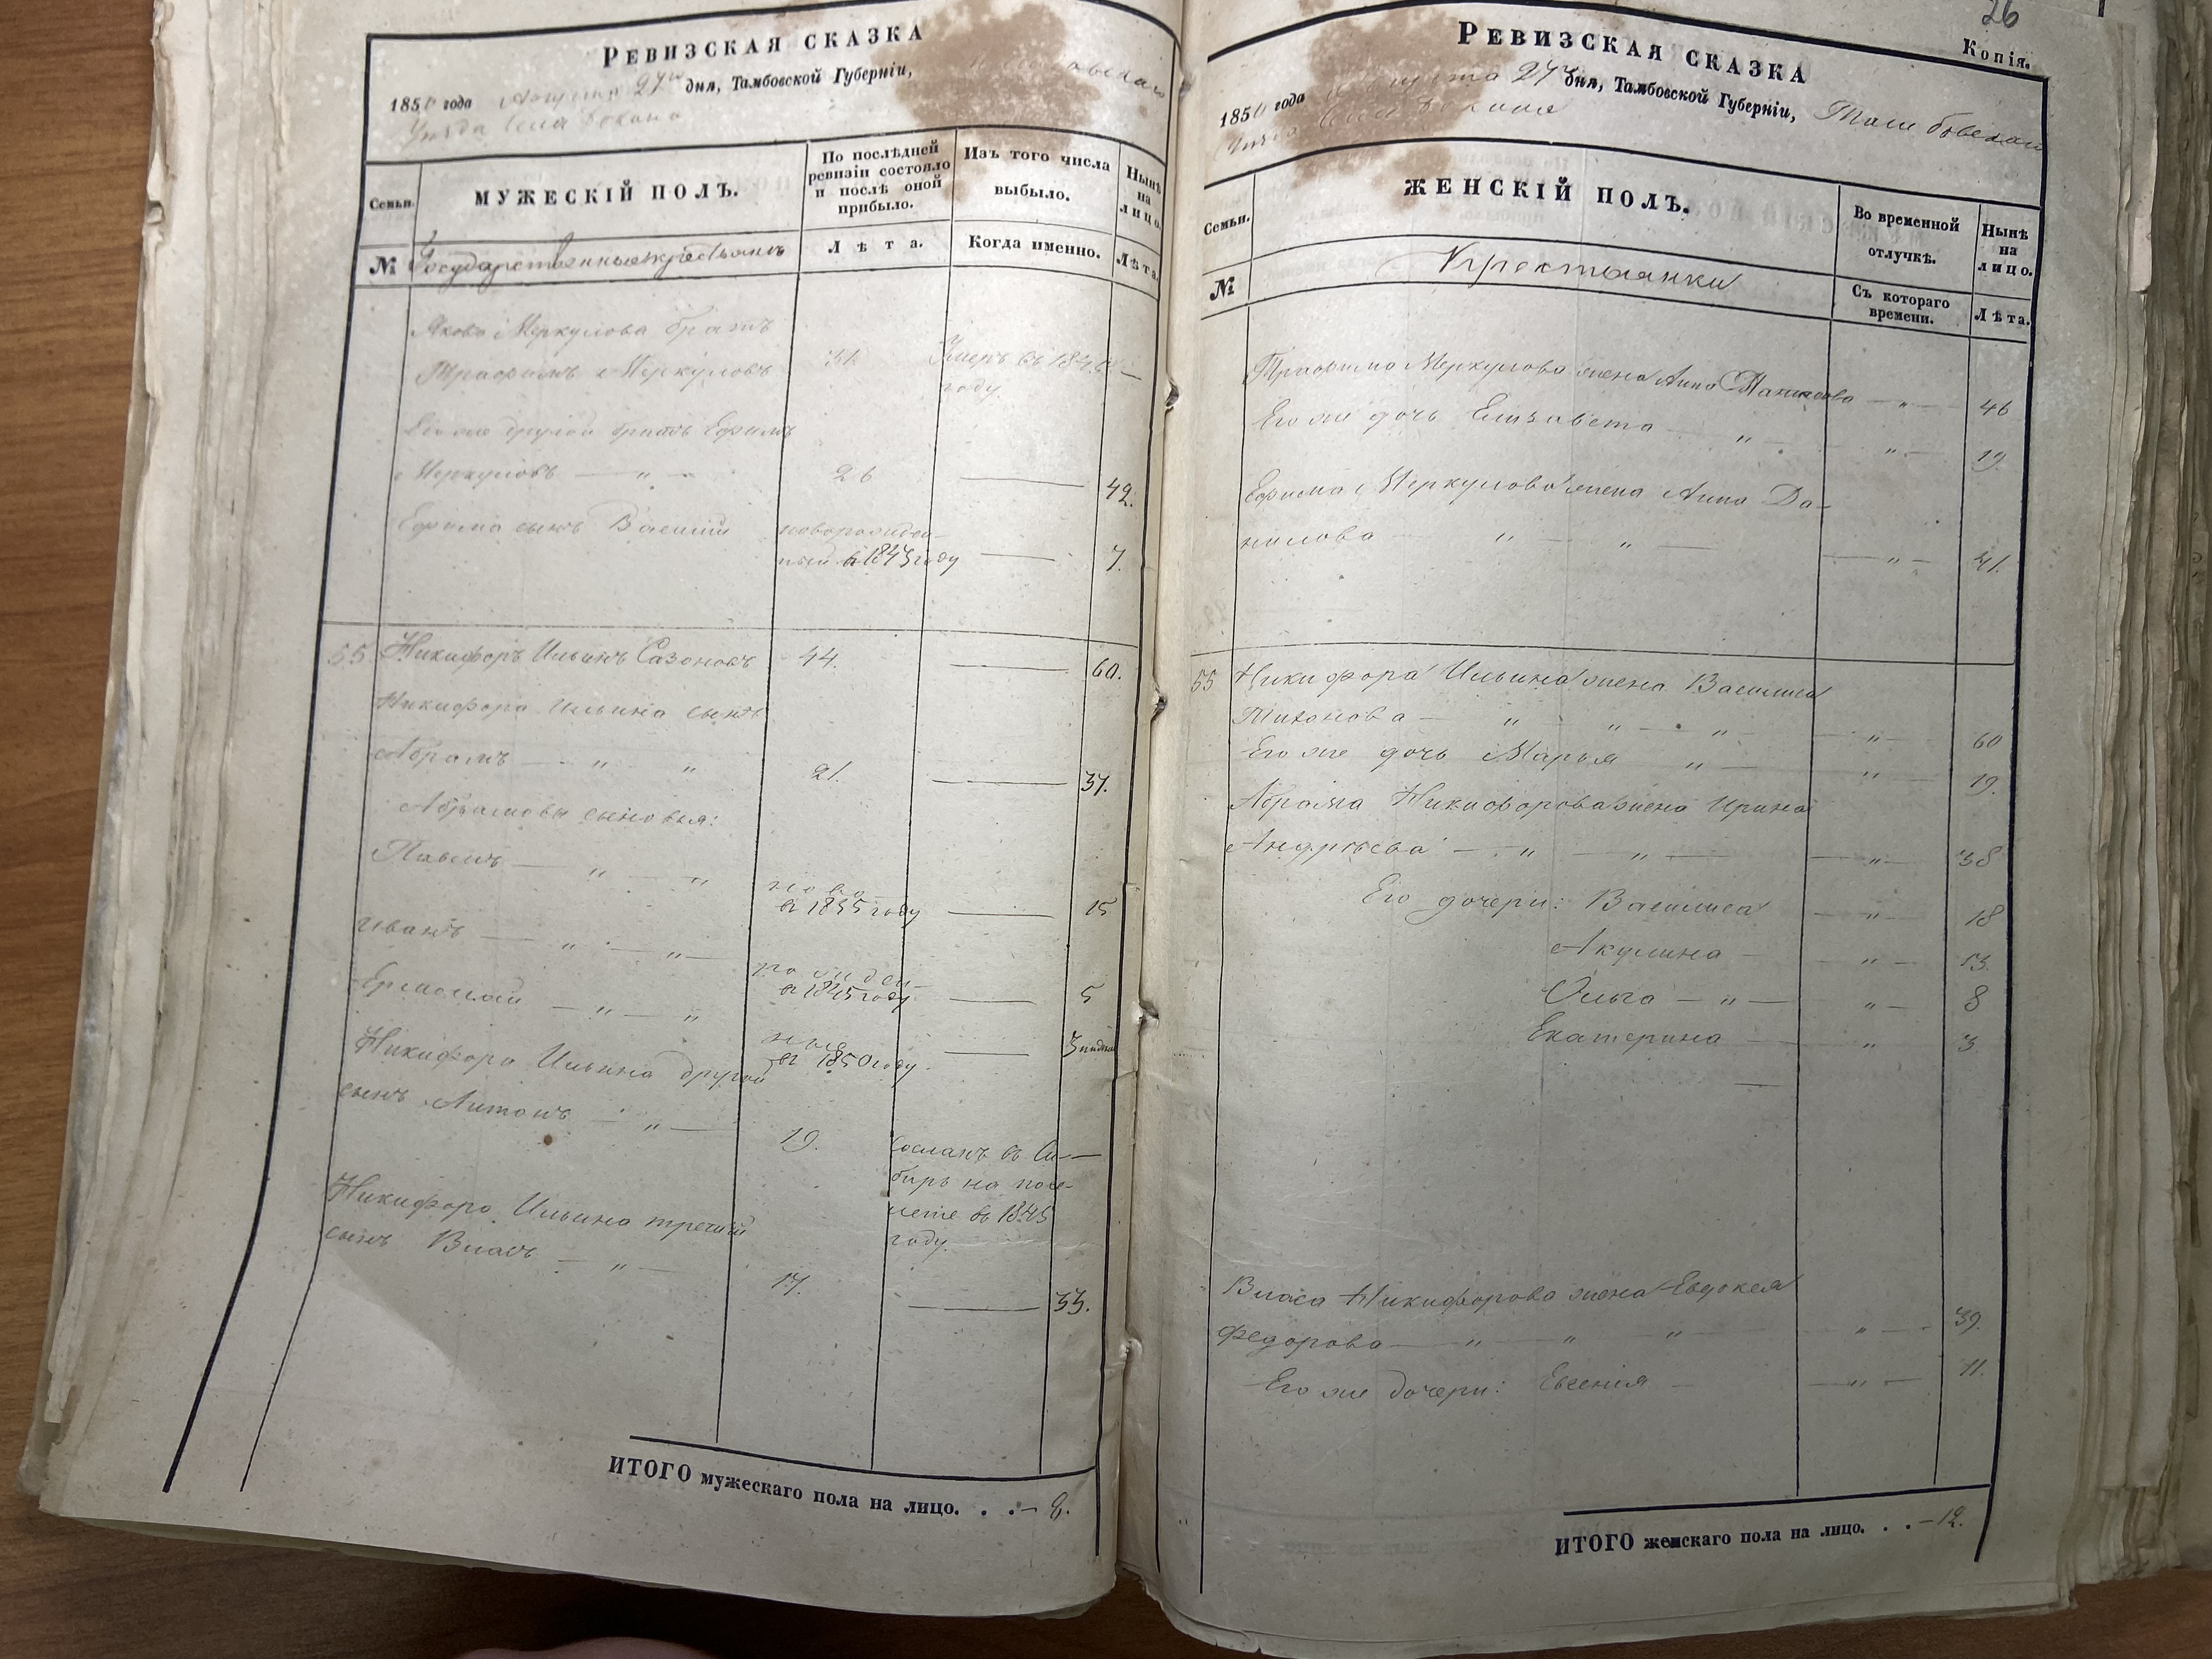 Ревизская сказка
1850 года Августа 27го дня, Тамбовской Губерніи,
Уѣзда села
Семьи.
МУЖЕСКІЙ ПОЛЪ.
По послѣдней ревизіи состояло и послѣ оной прибыло.
Изъ того числа выбыло.
Нынѣ на лицо.
№
Государственные крестьяне
Лѣта.
Когда именно.
Лѣта.
Якова Меркулова братъ
Трафимъ Меркуловъ 31. Умеръ въ году.
Его же другой братъ Ефимъ
Меркуловъ — " — 26 — 42.
Ефима сынъ Василій новорожден-
ный въ 1843 году — 7.
55 Никифоръ Ильинъ Сазоновъ 44. — 60.
Никифора Ильина сынъ
Абрамъ — " " 21. — 37.
Абрамовы сыновья:
Павелъ — " — " ново-
въ 1835 году — 15
Иванъ — " — " — рожден-
въ 1845 году — 5
Ермолай — " — " ные
въ 1850 году. — 3 недѣли
Никифора Ильина другой
сынъ Антонъ — " — 19. Сосланъ въ Си-
бирь на посе-
леніе въ 1845
году.
Никифора Ильина третій
сынъ Власъ — " — 17. — 33.
ИТОГО мужескаго пола на лицо. . . — 8.
26
Копія.
Ревизская сказка
1850 года Августа 27го дня, Тамбовской Губерніи, Тамбовскаго
Уѣзда села
Семьи.
ЖЕНСКІЙ ПОЛЪ.
Во временной отлучкѣ.
Нынѣ на лицо.
№
Крестьянки
Съ котораго времени.
Лѣта.
Трафима Меркулова жена Анна — " — 46
Его же дочь Елизавета — " — " — 19.
Ефима Меркулова жена Анна Да-
нилова — " — " — " — 41.
55 Никифора Ильина жена Василиса
Тихонова — " — " — " — " — 60
Его же дочь Марья " — " — 19.
Абрама Никифорова жена Ирина
Андреева — " — " — — " — 38
Его дочери: Василиса — " — 18
Акулина — — " — 13.
Ольга — " — " — 8
Екатерина — " — 3.
Власа Никифорова жена Евдокея
Федорова — " — " — " — " — 39.
Его же дочери: Евгенія — — " — 11.
ИТОГО женскаго пола на лицо. . . — 12.